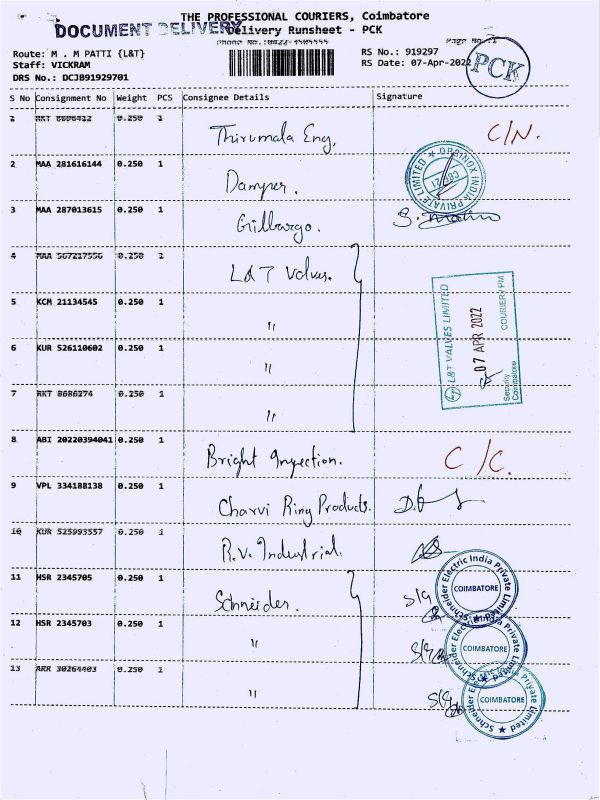 THE PROFESSIONAL COURIERS, Coimbatore
DOCUMENT DELIVERY
Delivery Runsheet - PCK
Page No.:1
PCK
Route: M . M PATTI {L&T}
RS No.: 919297
Staff: VICKRAM
RS Date: 07-Apr-2022
DRS No.: DCJB91929701
S No Consignment No Weight PCS Consignee Details Signature
1 RKT 8686412 0.250 1 Thirumala Eng. C/N.
2 MAA 281616144 0.250 1 Damper.
ORBINOX INDIA PRIVATE LIMITED
CBE-21
3 MAA 287013615 0.250 1 Gilbargo.
4 MAA 567217556 0.250 1 L&T Valves.
5 KCM 21134545 0.250 1 "
6 KUR 526110602 0.250 1 "
7 RKT 8686274 0.250 1 "
L&T VALVES LIMITED
07 APR 2022
COURIER / PM
Security
Coimbatore
8 ABI 20220394041 0.250 1 Bright Inspection. C/C.
9 VPL 334188138 0.250 1 Charvi Ring Products.
10 KUR 525993557 0.250 1 R.V. Industrial.
11 HSR 2345705 0.250 1 Schneider.
Schneider Electric India Private Limited
COIMBATORE
12 HSR 2345703 0.250 1 "
Schneider Electric India Private Limited
COIMBATORE
13 ARR 30264403 0.250 1 "
Schneider Electric India Private Limited
COIMBATORE